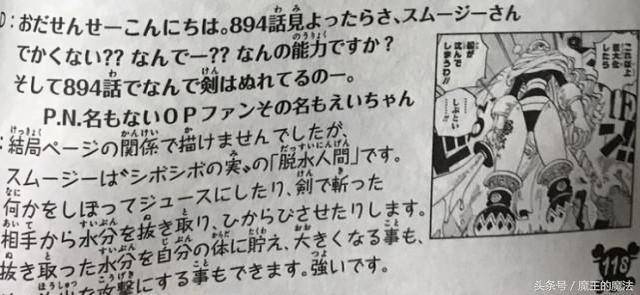 D:おだせんせーこんにちは。894話見よったらさ、スムージーさん
でかくない??なんでー??なんの能力ですか?
そして894話でなんで剣はぬれてるのー。
P.N.名もないOPファンその名もえいちゃん
:結局ページの関係で描けませんでしたが、
スムージーは"シボシボの実"の「脱水人間」です。
何かをしぼってジュースにしたり、剣で斬った
相手から水分を抜き取り、ひからびさせたりします。
抜き取った水分を自分の体に貯え、大きくなる事も、
攻撃にする事もできます。強いです。
これ以上
巨大化
したら
船が
沈んで
しまうわ!!
しぶとい
118
头条号/魔王的魔法